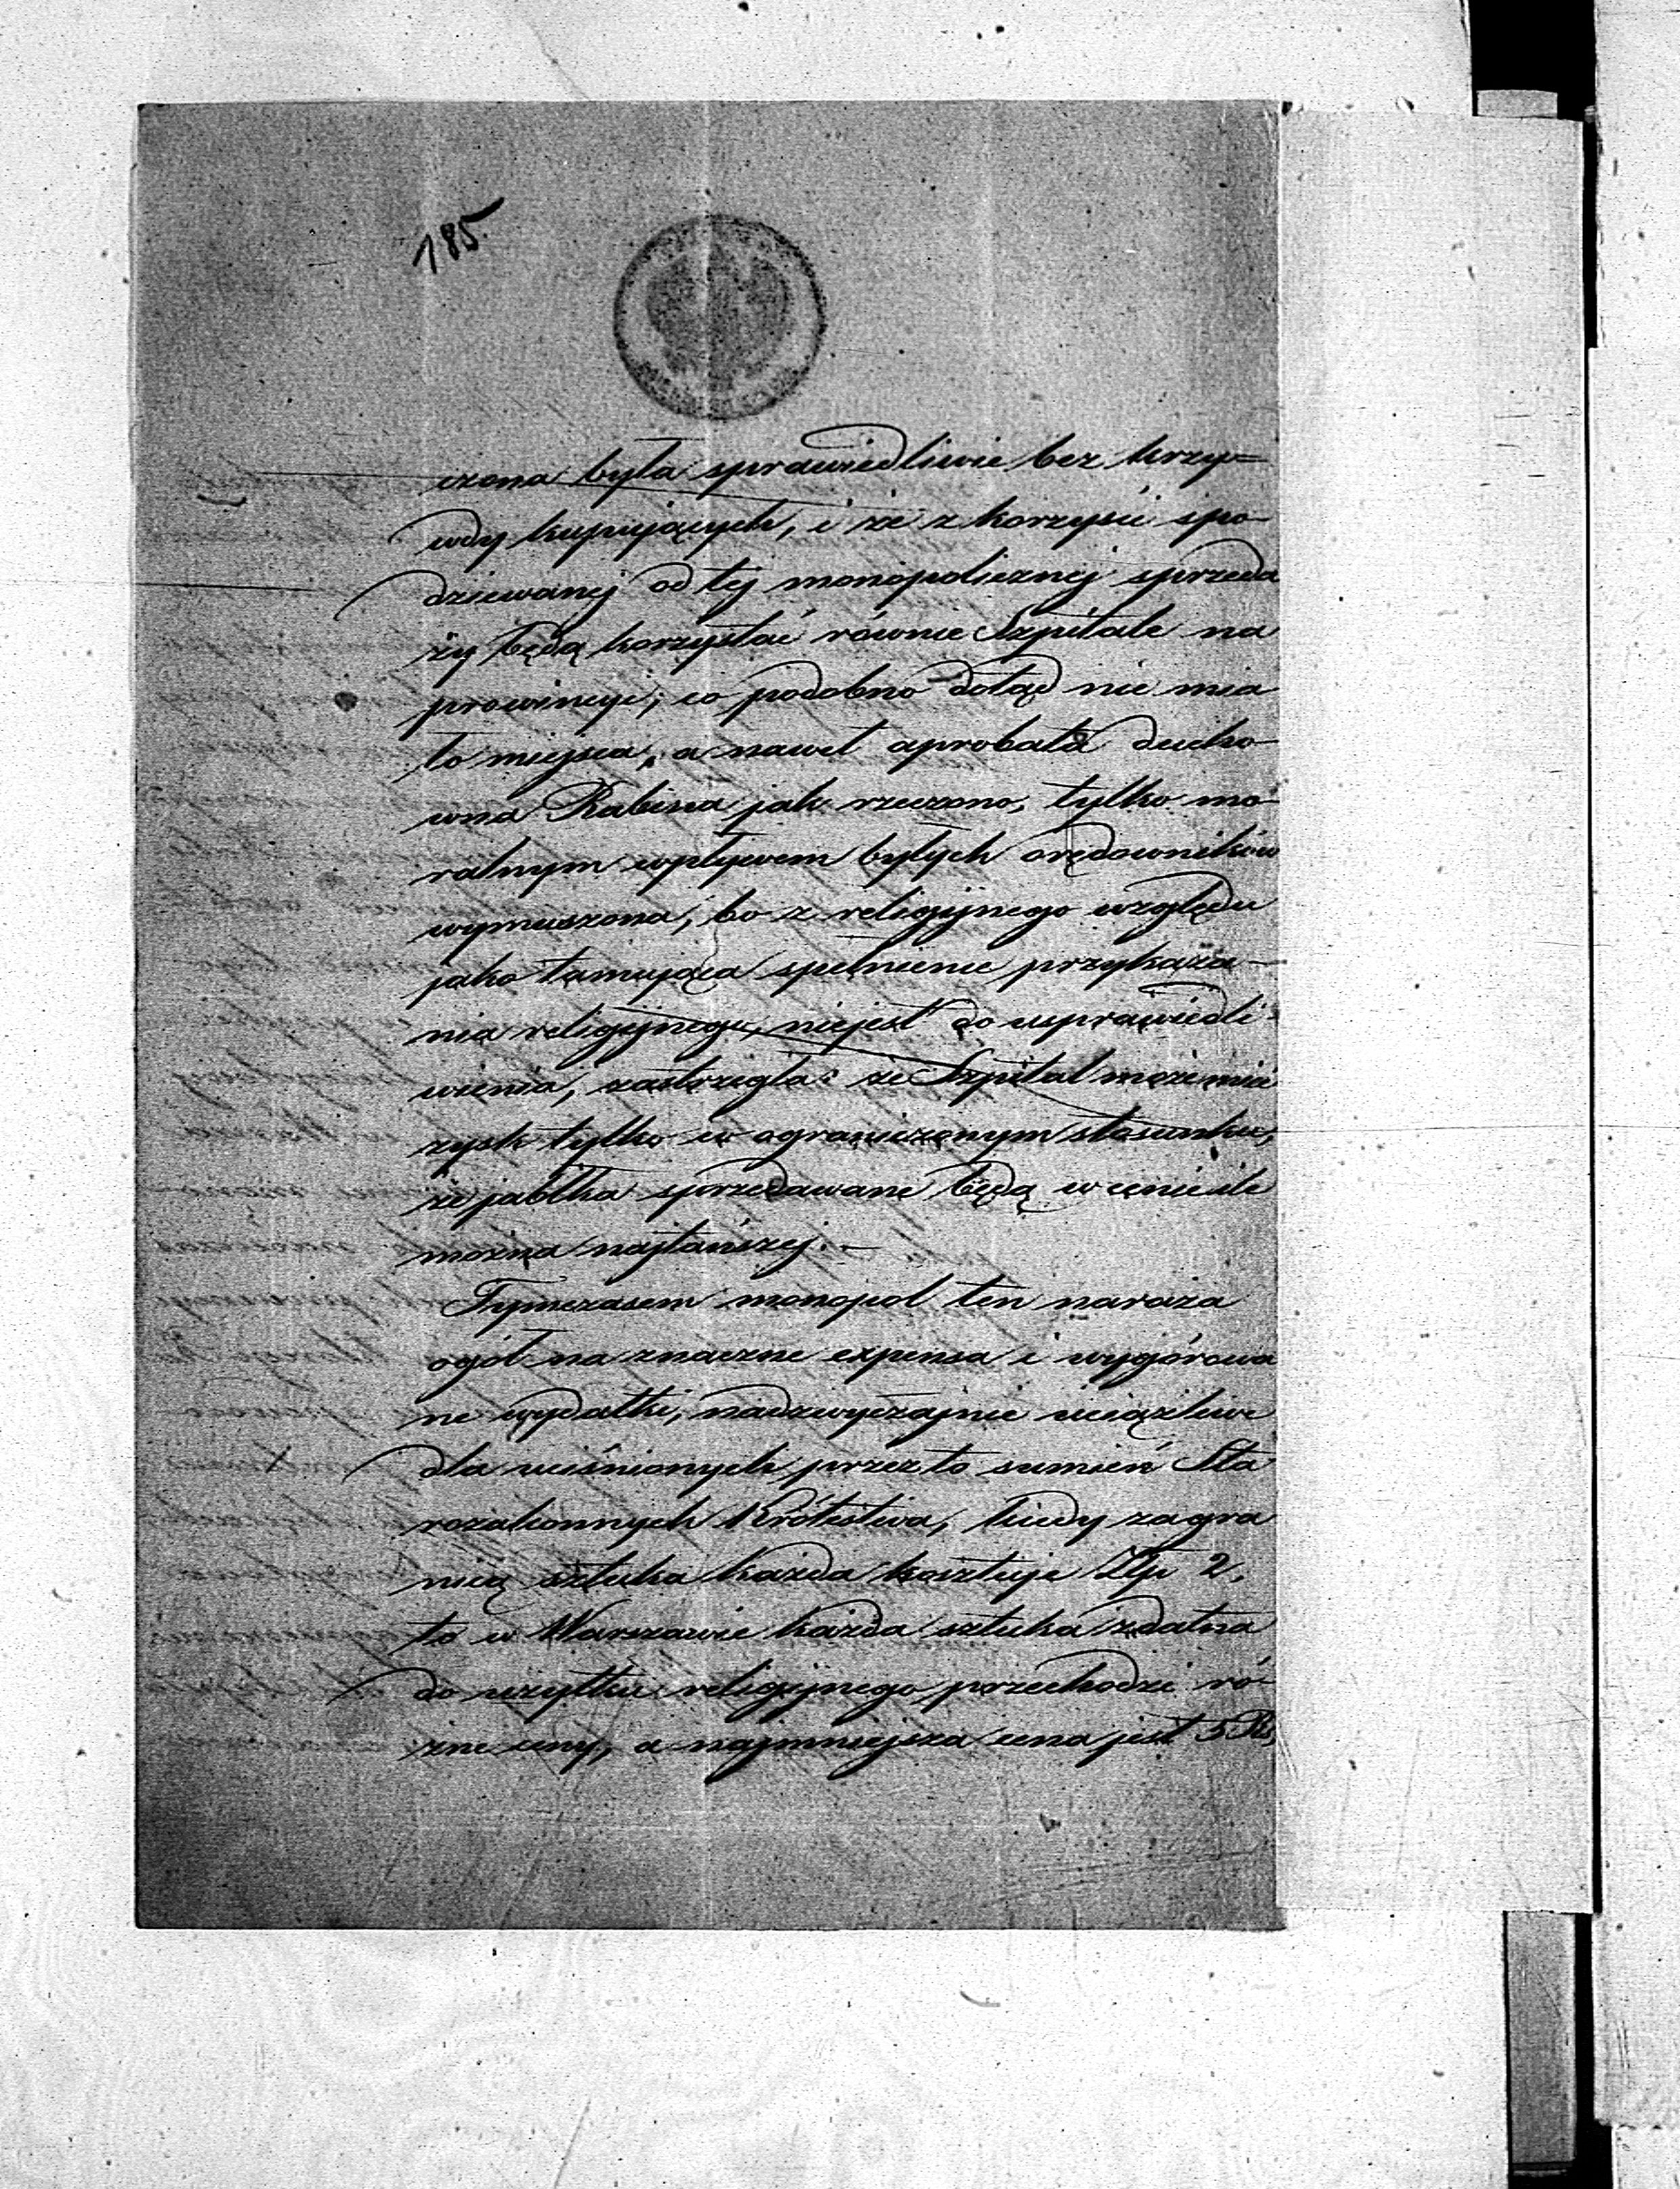 185.
czona była sprawiedliwie bez krzy=
wdy kupujących, i że z korzyści spo-
dziewanej od tej monopolicznej sprzeda
ży będą korzystać równie Szpitale na
prowincyi, co podobno dotąd nie mia
ło miejsca, a nawet aprobata ducho-
wna Rabina jak rzeczono, tylko mo-
ralnym wpływem byłych orędowników
wymuszona, bo z religijnego względu
jako tamująca spełnienie przykaza-
nia religijnego, niejest do usprawiedli-
wienia, zastrzegła: że Szpital może mieć
zysk tylko w ograniczonym stosunku,
że jabłka sprzedawane będą w cenie ile
można najtańszej. —
Tymczasem monopol ten naraża
ogół na znaczne expensa i wygórowa
ne wydatki, nadzwyczajnie uciążliwe
dla uciśnionych przez to sumień Sta
rozakonnych Królestwa, kiedy zagra
nicą sztuka każda kosztuje Złp 2,
to w Warszawie każda sztuka zdatna
do użytku religijnego przechodzi ró-
żne ceny, a najmniejsza cena jest 5 Rs,